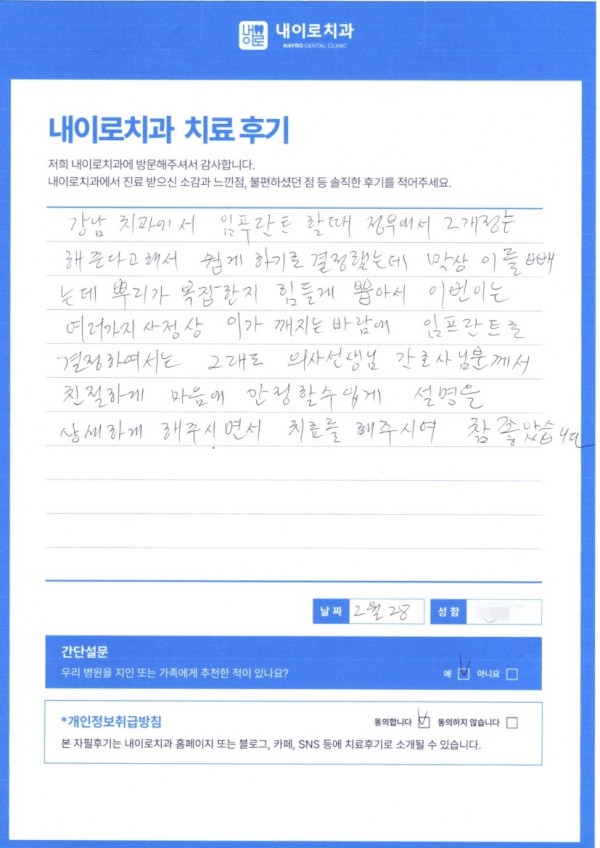 내이로치과
NAYRO DENTAL CLINIC
내이로치과 치료 후기
저희 내이로치과에 방문해주셔서 감사합니다.
내이로치과에서 진료 받으신 소감과 느낀점, 불편하셨던 점 등 솔직한 후기를 적어주세요.
강남 치과에서 임푸란트 할때 정우에서 2개정은
해준다고해서 쉽게 하기로결정했는데 막상 이를 빼
는데 뿌리가 복잡한지 힘들게 뽑아서 이번이는
여러가지사정상 이가 깨지는바람에 임프란트를
결정하여서는 그래도 의사선생님 간호사님분께서
친절하게 마음에 안정할수있게 설명을
상세하게 해주시면서 치료를 해주시여 참 좋았습니다
날짜 2월 28 성함
간단설문
우리 병원을 지인 또는 가족에게 추천한 적이 있나요? 예 아니요
*개인정보취급방침 동의합니다 동의하지 않습니다
본 자필후기는 내이로치과 홈페이지 또는 블로그, 카페, SNS 등에 치료후기로 소개될 수 있습니다.